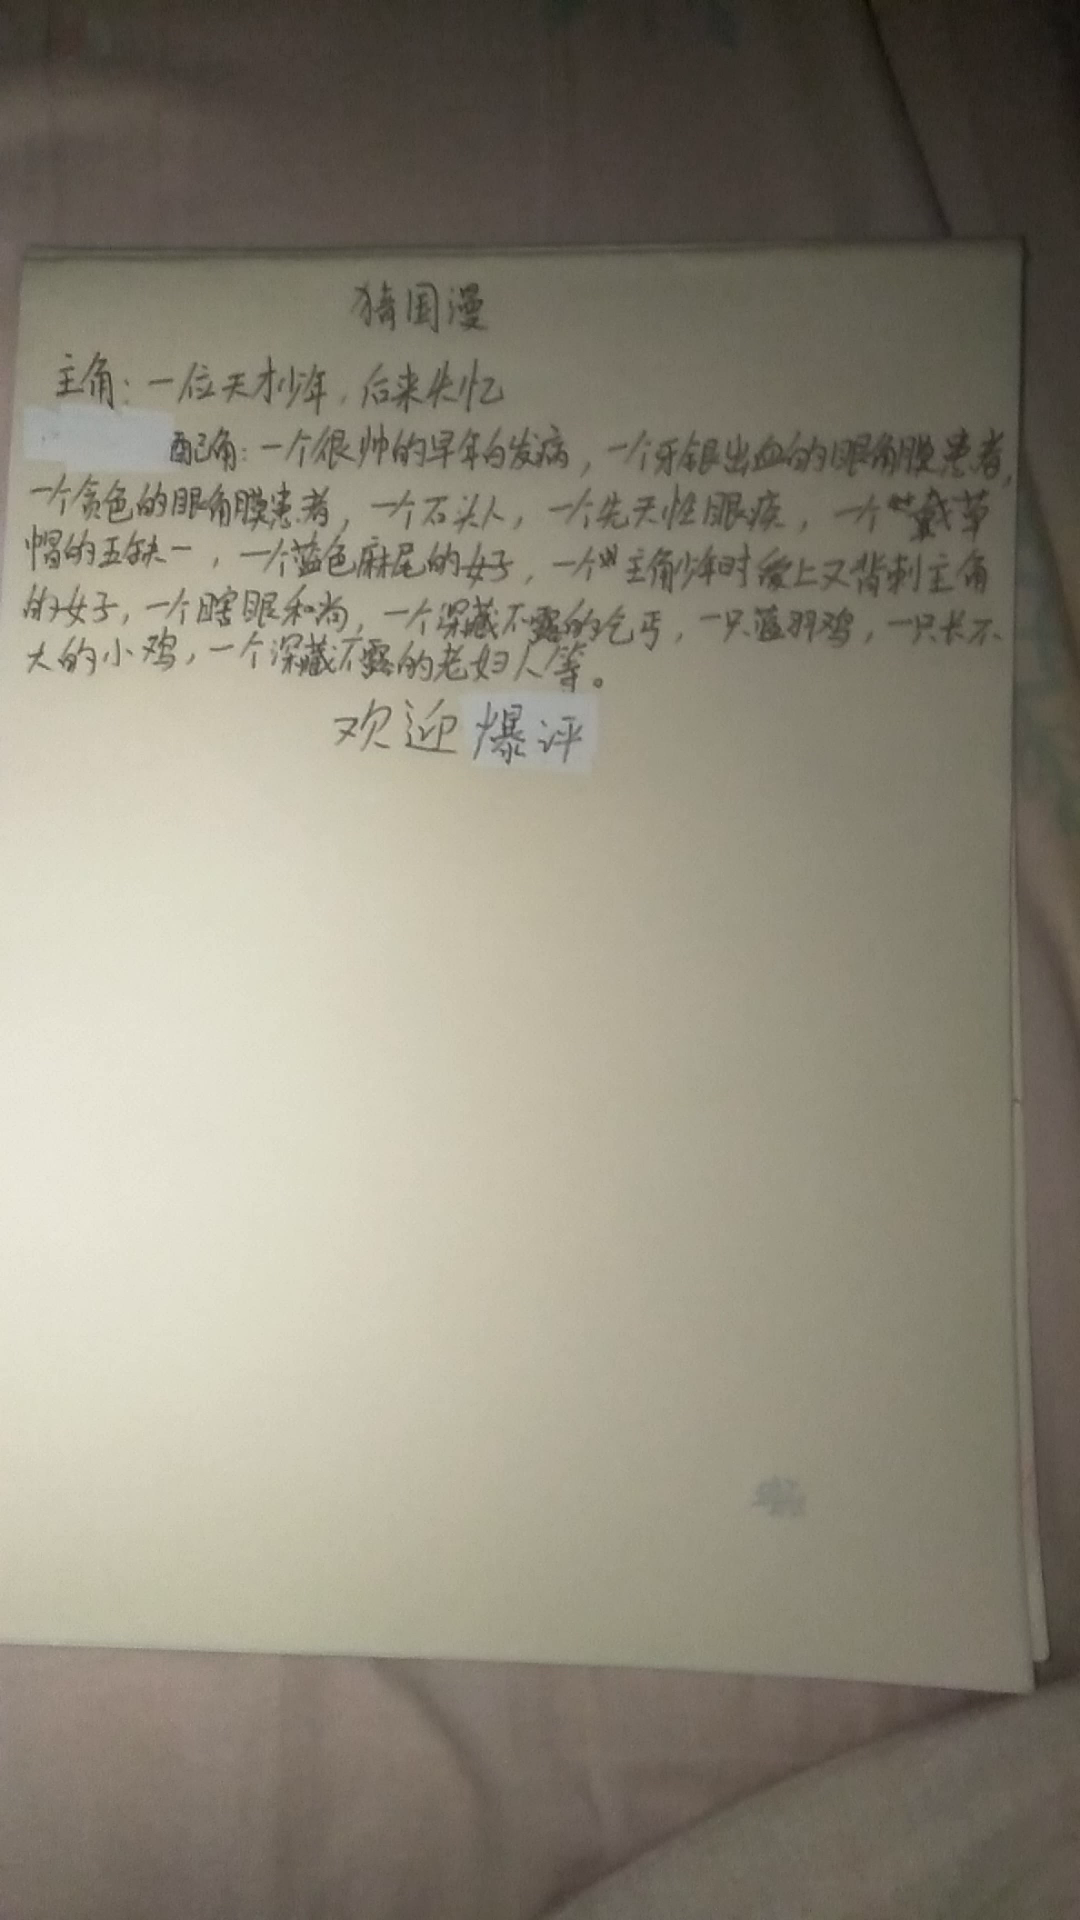 猜国漫
主角：一位天才少年，后来失忆
配角：一个很帅的早年白发病，一个牙龈出血的眼角膜患者，
一个贪色的眼角膜患者，一个石头人，一个先天性眼疾，一个戴草
帽的五缺一，一个蓝色麻尾的女子，一个主角少年时爱上又背刺主角
的女子，一个瞎眼和尚，一个深藏不露的乞丐，一只蓝羽鸡，一只长不
大的小鸡，一个深藏不露的老妇人等。
欢迎爆评